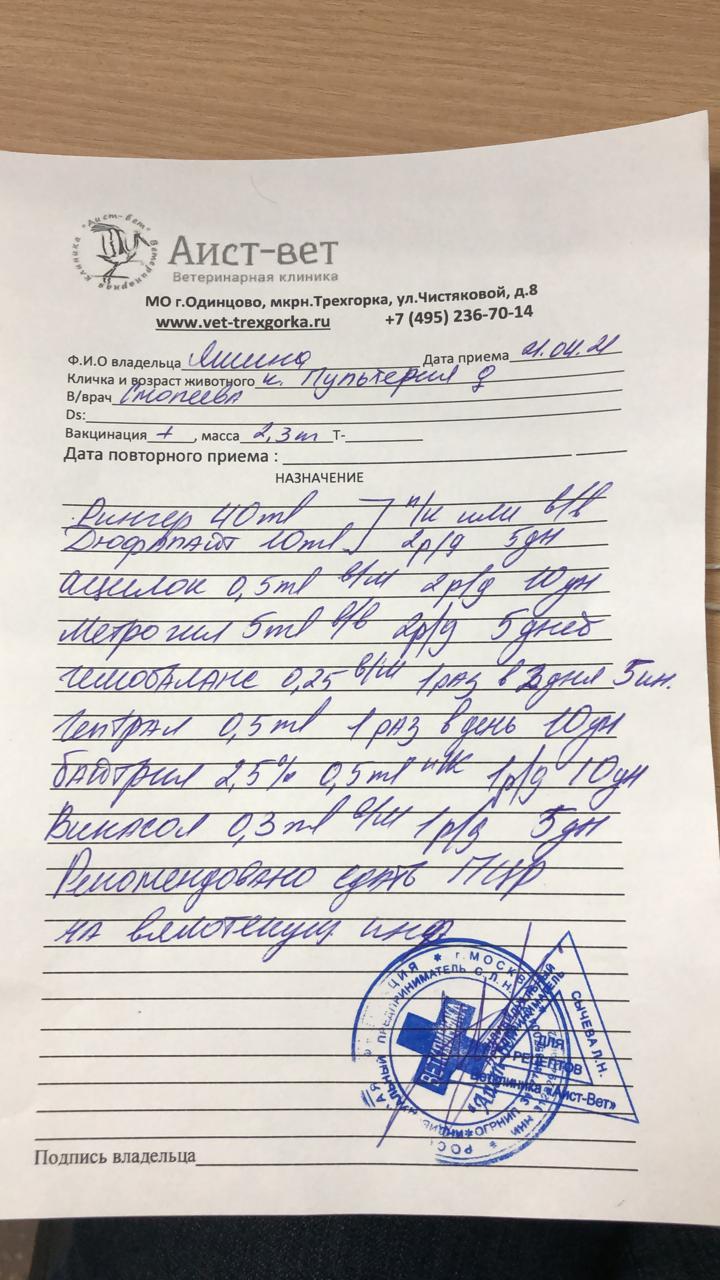 "Аист-вет" Ветеринарная клиника
Аист-вет
Ветеринарная клиника
МО г.Одинцово, мкрн.Трехгорка, ул.Чистяковой, д.8
www.vet-trexgorka.ru +7 (495) 236-70-14
Ф.И.О владельца Яшина Дата приема 21.04.21
Кличка и возраст животного к.
В/врач
Ds:
Вакцинация + , масса 2,3 Т-
Дата повторного приема :
НАЗНАЧЕНИЕ
Рингер 40ml п/к или в/в
Дюфалайт 10ml 2р/д 5дн
Ацилок 0,5ml в/м 2р/д 10дн
Метрогил 5ml в/в 2р/д 5дней
Гемобаланс 0,25 в/м 1раз в дня 5ин.
Гептрал 0,5ml 1раз в день 10дн
Байтрил 2,5% 0,5ml п/к 1р/д 10дн
Викасол 0,3ml в/м 1р/д 5дн
Рекомендовано сдать ПЦР
на вялотекущ инф
г.МОСКВА
ПРЕДПРИНИМАТЕЛЬ С.Л.Н.
ВЕТКЛИНИКА
СЫЧЕВА Л.Н.
ДЛЯ
РЕЦЕПТОВ
Ветклиника «Аист-Вет»
Подпись владельца